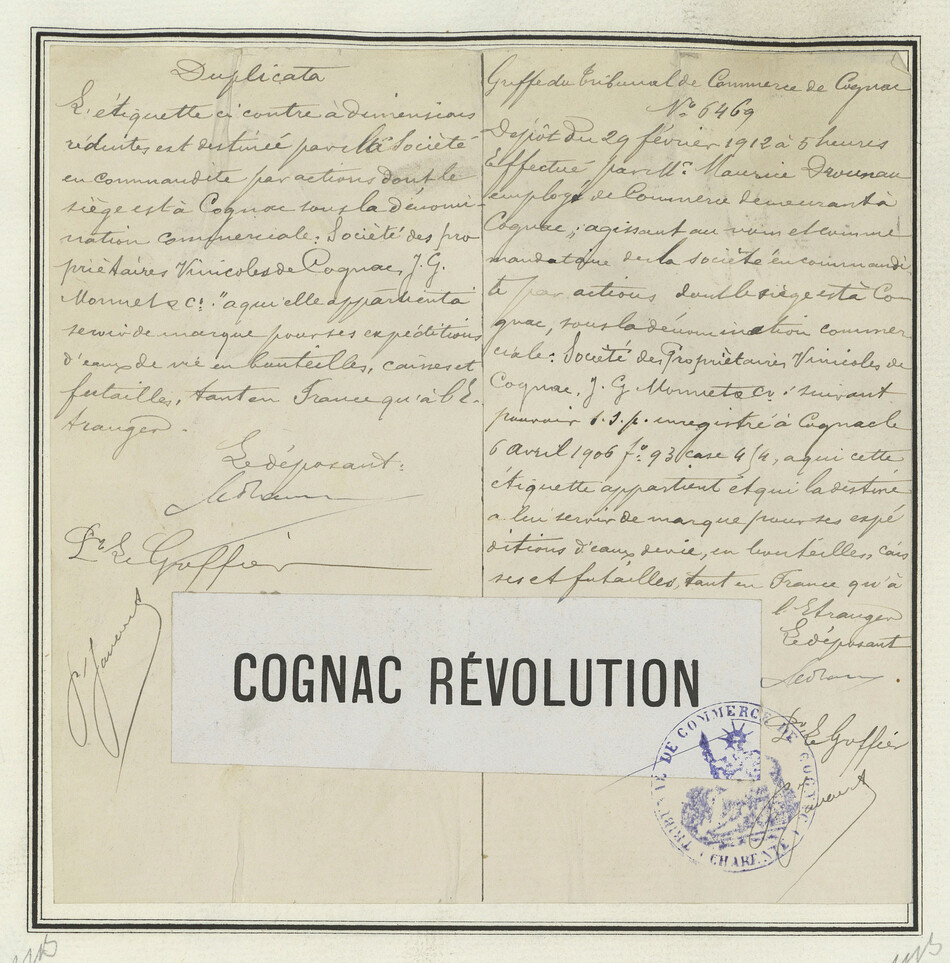 Duplicata
L'étiquette ci contre à dimensions
réduites est destinée par la Société
en commandite par actions dont le
siège est à Cognac sous la dénomi-
nation commerciale: Société des pro
priétaires Vinicoles de Cognac, J. G.
Monnet & Cie. "à qui elle appartient à
servir de marque pour ses expéditions
d'eaux de vie en bouteilles, caisses et
futailles, tant en France qu'à l'E-
tranger.
Le déposant:
Pr Le Greffier
Greffe du Tribunal de Commerce de Cognac
No 6469
Dépôt du 29 février 1912 à 5 heures
Effectué par Mr. Maurice
employé de Commerce demeurant à
Cognac, agissant au nom et comme
mandataire de la société en commandi
te par actions dont le siège est à Co
gnac, sous la dénomination commer
ciale: Société des Propriétaires Vinicoles de
Cognac, J. G Monnet & Co: suivant
pouvoir s.s.p. enregistré à Cognac le
6 avril 1906 fo 93 case 4/4, à qui cette
étiquette appartient et qui la destine
à lui servir de marque pour ses expé
ditions d'eaux de vie, en bouteilles, cais
ses et futailles, tant en France qu'à
l'Etranger
Le déposant
Pr Le Greffier
COGNAC RÉVOLUTION
TRIBUNAL DE COMMERCE DE COGNAC
CHARENTE